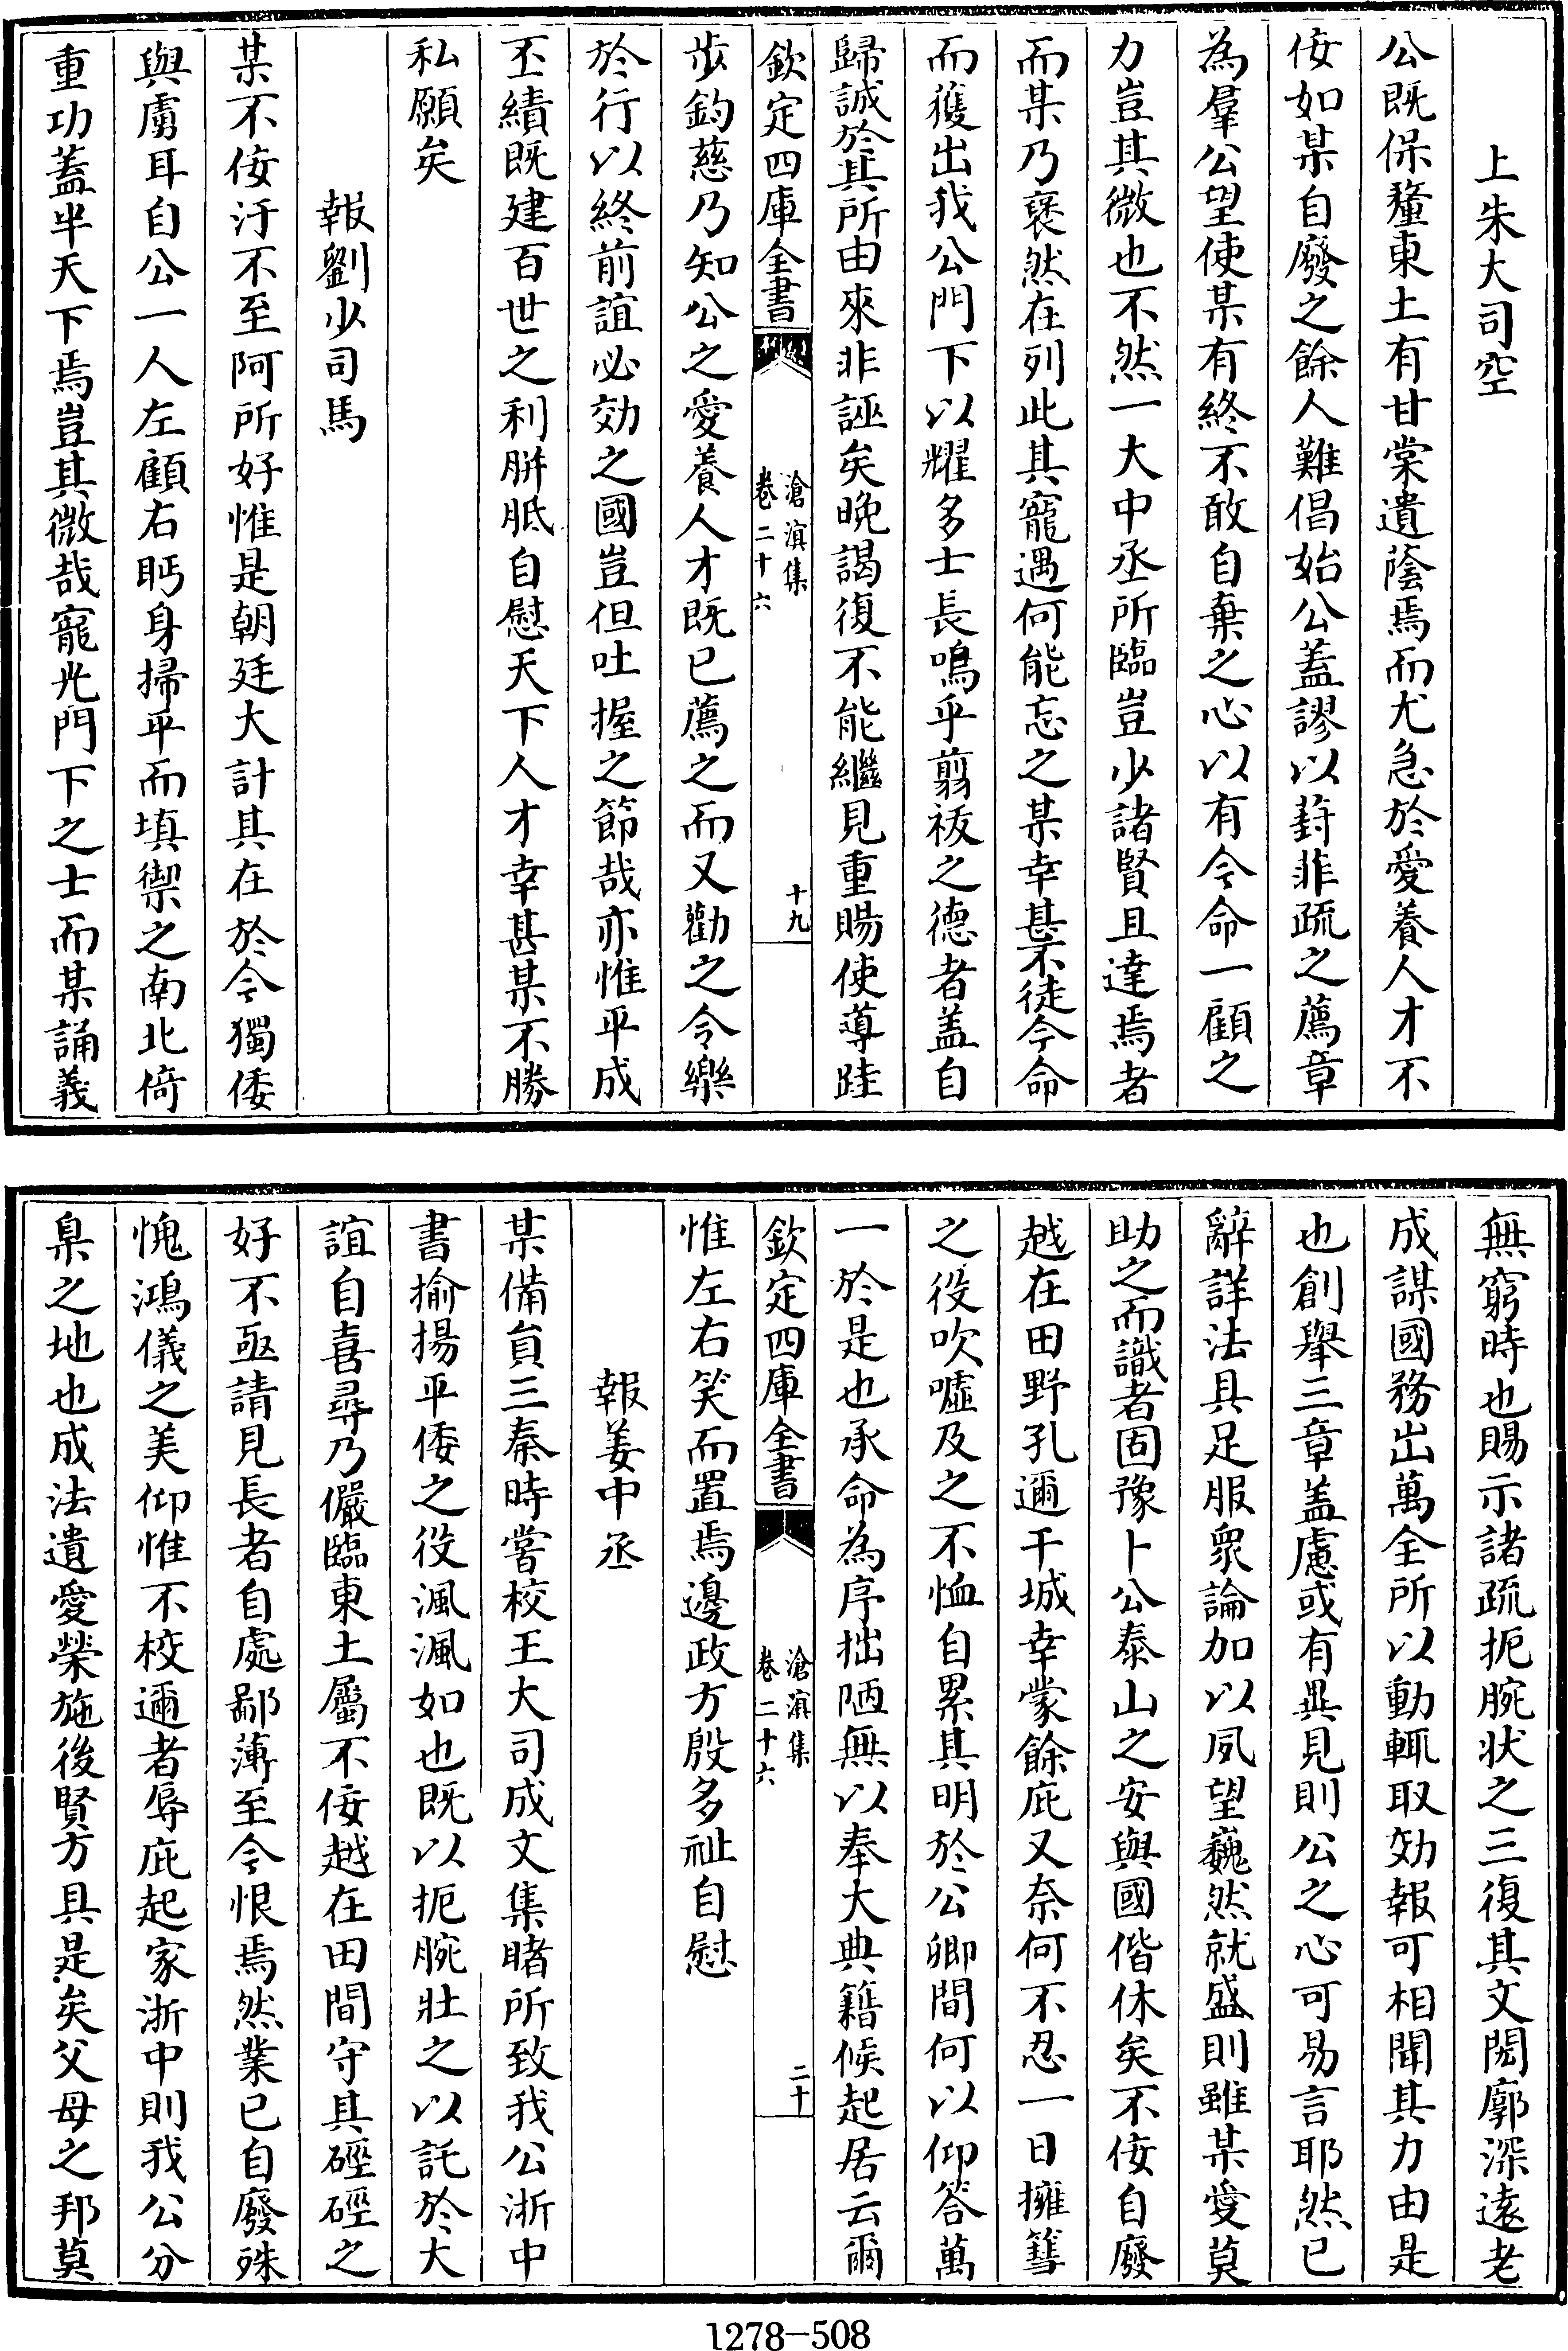 上朱大司空
公既保釐東土有甘棠遺蔭焉而尤急於愛養人才不
佞如某自廢之餘人難倡始公蓋謬以葑菲疏之薦章
為羣公望使某有終不敢自棄之心以有今命一顧之
力豈其微也不然一大中丞所臨豈少諸賢且達焉者
而某乃褎然在列此其寵遇何能忘之某幸甚不徒今命
而獲出我公門下以耀多士長鳴乎剪祓之德者蓋自
歸誠於其所由來非誣矣晚謁復不能繼見重賜使導跬
欽定四庫全書
滄溟集
卷二十六
十九
步鈞慈乃知公之愛養人才既已薦之而又勸之令樂
於行以終前誼必効之國豈但吐握之節哉亦惟平成
丕績既建百世之利胼胝自慰天下人才幸甚某不勝
私願矣
報劉少司馬
某不佞汙不至阿所好惟是朝廷大計其在於今獨倭
與虜耳自公一人左顧右眄身掃平而填禦之南北倚
重功蓋半天下焉豈其微哉寵光門下之士而某誦義
無窮時也賜示諸疏扼腕狀之三復其文閎廓深遠老
成謀國務出萬全所以動輒取効報可相聞其力由是
也創舉三章盖慮或有異見則公之心可易言耶然已
辭詳法具足服衆論加以夙望巍然就盛則雖某愛莫
助之而識者固豫卜公泰山之安與國偕休矣不佞自廢
越在田野孔邇干城幸蒙餘庇又奈何不忍一日擁篲
之役吹噓及之不恤自累其明於公卿間何以仰答萬
一於是也承命為序拙陋無以奉大典籍候起居云爾
欽定四庫全書
滄溟集
卷二十六
二十
惟左右笑而置焉邊政方殷多祉自慰
報姜中丞
某備員三秦時嘗校王大司成文集睹所致我公浙中
書揄揚平倭之役渢渢如也既以扼腕壯之以託於大
誼自喜尋乃儼臨東土屬不佞越在田間守其硜硜之
好不亟請見長者自處鄙薄至今恨焉然業已自廢殊
愧鴻儀之美仰惟不校邇者辱庇起家浙中則我公分
臬之地也成法遺愛榮施後賢方具是矣父母之邦莫
1278-508